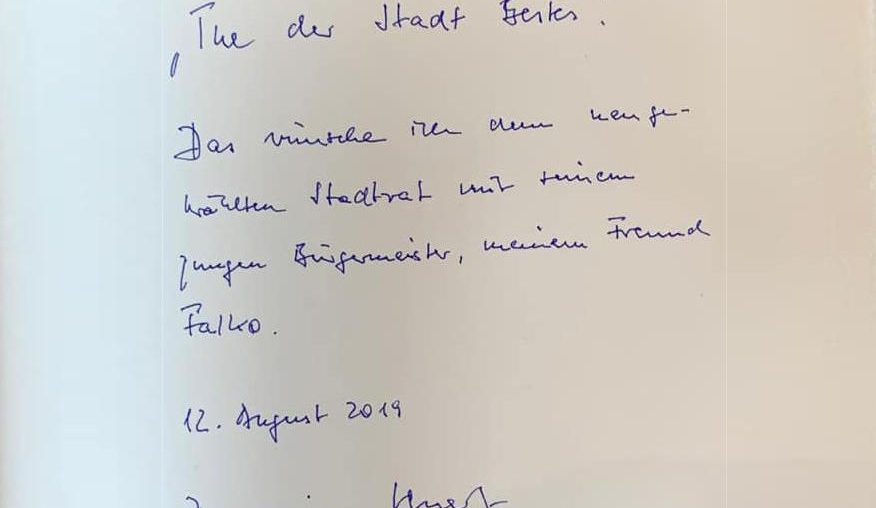 „Tue der Stadt Bestes.
Das wünsche ich dem neuge-
wählten Stadtrat mit seinem
jungen Bürgermeister, meinem Freund
Falko.
12. August 2019